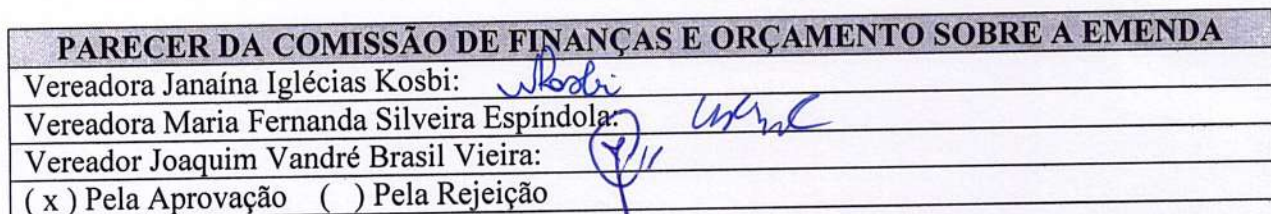 PARECER DA COMISSÃO DE FINANÇAS E ORÇAMENTO SOBRE A EMENDA
Vereadora Janaína Iglécias Kosbi: Kosbi
Vereadora Maria Fernanda Silveira Espíndola:
Vereador Joaquim Vandré Brasil Vieira:
( x ) Pela Aprovação ( ) Pela Rejeição